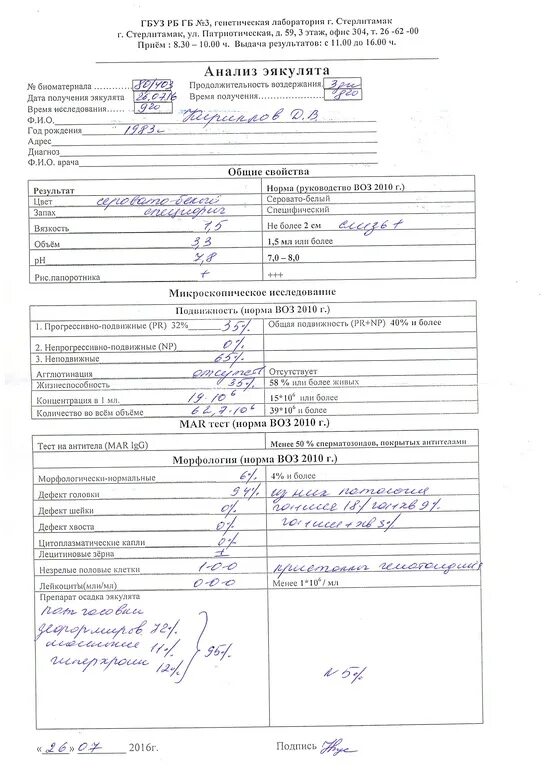 ГБУЗ РБ ГБ №3, генетическая лаборатория г. Стерлитамак
г. Стерлитамак, ул. Патриотическая, д. 59, 3 этаж, офис 304, т. 26 -62 -00
Приём : 8.30 – 10.00 ч. Выдача результатов: с 11.00 до 16.00 ч.
Анализ эякулята
№ биоматериала 80/403 Продолжительность воздержания 3 дн
Дата получения эякулята 26.07.16 Время получения 8 20
Время исследования 9 20
Ф.И.О. Кириллов Д.В
Год рождения 1983г
Адрес
Диагноз
Ф.И.О. врача
Общие свойства
Результат Норма (руководство ВОЗ 2010 г.)
Цвет серовато-белый Серовато-белый
Запах специфич Специфический
Вязкость 1,5 Не более 2 см слизь +
Объём 3,3 1,5 мл или более
pH 7,8 7,0 – 8,0
Рис.папоротника + +++
Микроскопическое исследование
Подвижность (норма ВОЗ 2010 г.)
1. Прогрессивно-подвижные (PR) 32% 35% Общая подвижность (PR+NP) 40% и более
2. Непрогрессивно-подвижные (NP) 0%
3. Неподвижные 65%
Агглютинация отсутств Отсутствует
Жизнеспособность 35% 58 % или более живых
Концентрация в 1 мл. 19·10⁶ 15*10⁶ или более
Количество во всём объёме 62,7·10⁶ 39*10⁶ и более
MAR тест (норма ВОЗ 2010 г.)
Тест на антитела (MAR IgG) Менее 50 % сперматозоидов, покрытых антителами
Морфология (норма ВОЗ 2010 г.)
Морфологически-нормальные 6% 4% и более
Дефект головки 94% из них патология
Дефект шейки 0% гол+шее 18% гол+хв 9%
Дефект хвоста 0% гол+шее+хв 3%
Цитоплазматические капли 0%
Лецитиновые зёрна 1
Незрелые половые клетки 1-0-0 кристаллы
Лейкоциты(млн/мл) 0-0-0 Менее 1*10⁶ / мл
Препарат осадка эякулята
пат головки
деформиров 72%
11% 95%
гиперхром 12%
N 5%
« 26 » 07 2016г. Подпись